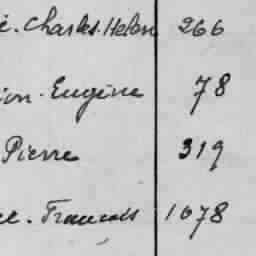 Charles. Helen 266
Eugène 78
Pierre 319
Francois 1078